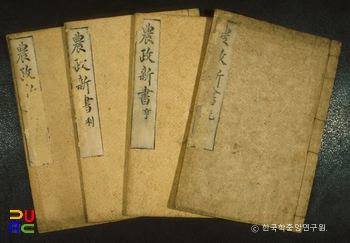 農政
農政新書 利
農政新書 亨
農政新書
© 한국학중앙연구원